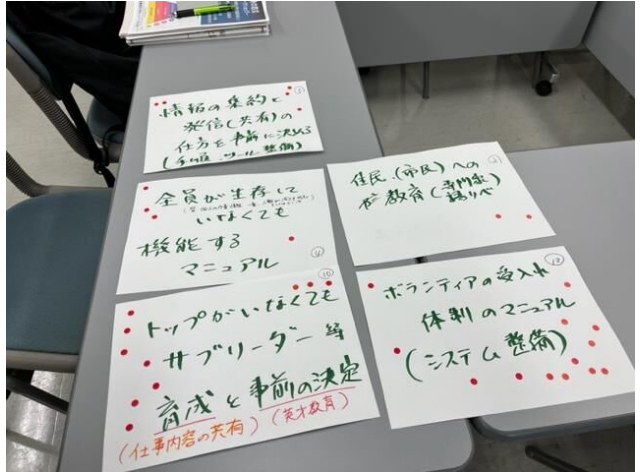 ①
情報の集約と
発信(共有)の
仕方を事前に決める
(手段、ツール整備)
全員が生存して
いなくても
機能する
マニュアル
トップがいなくても
サブリーダー等
育成と事前の決定
(仕事内容の共有)(英才教育)
住民(市民)への
教育(専門家)
語りべ
ボランティアの受入れ
体制のマニュアル
(システム整備)